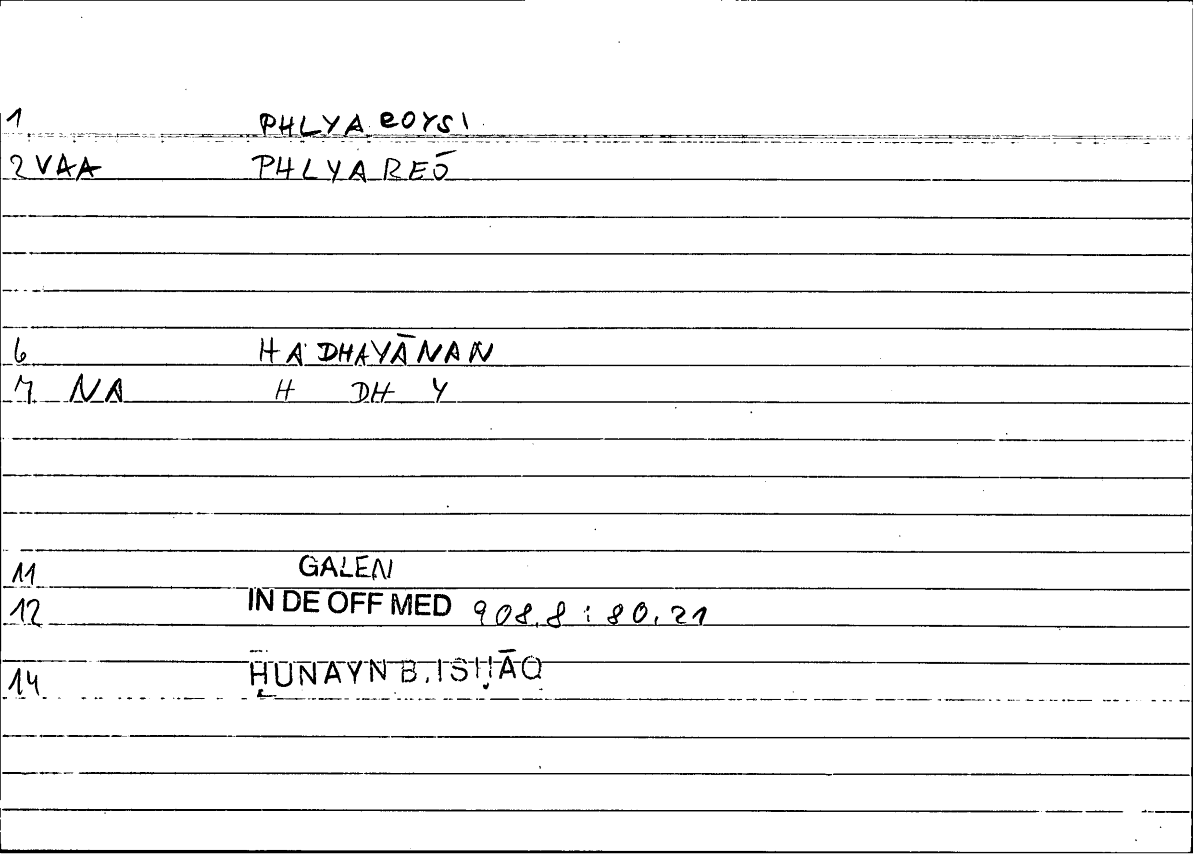 1 PHLYA ROYSI
2 VAA PHLYAREŌ
6 HADHAYĀNAN
7 NA H DH Y
11 GALEN
12 IN DE OFF MED 908.8 : 80.21
14 ḤUNAYN B. ISḤĀQ